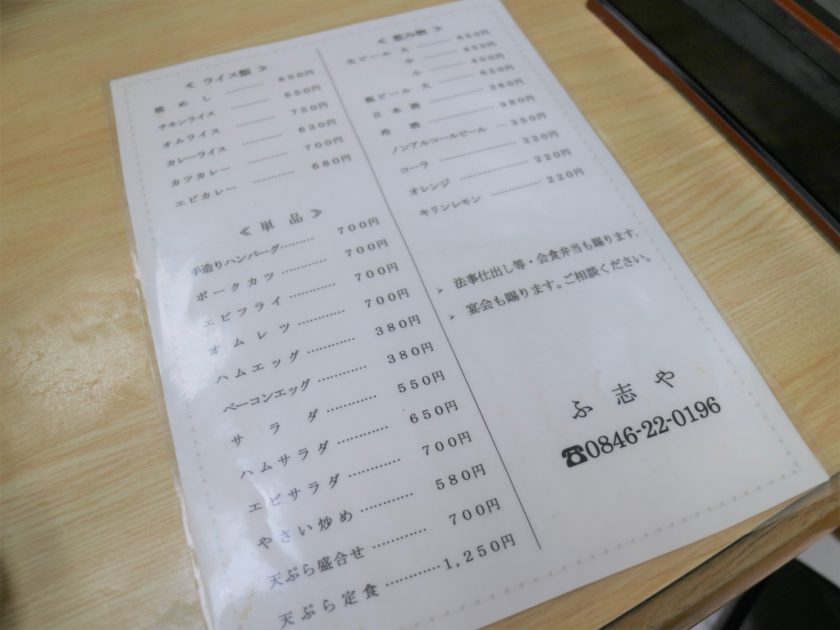 ≪ ライス類 ≫
焼めし ……… 650円
チキンライス ……… 650円
オムライス ……… 750円
カレーライス ……… 630円
カツカレー ……… 700円
エビカレー ……… 680円
≪ 単品 ≫
手造りハンバーグ……… 700円
ポークカツ ……… 700円
エビフライ ……… 700円
オムレツ ……… 700円
ハムエッグ ……… 380円
ベーコンエッグ ……… 380円
サラダ ……… 550円
ハムサラダ ……… 650円
エビサラダ ……… 700円
やさい炒め ……… 580円
天ぷら盛合せ ……… 700円
天ぷら定食 ………1,250円
≪ 飲み物 ≫
生ビール 大 ……… 650円
中 ……… 450円
小 ……… 400円
瓶ビール 大 ……… 650円
日本酒 ……… 380円
冷酒 ……… 980円
ノンアルコールビール … 350円
コーラ ……… 220円
オレンジ ……… 220円
キリンレモン ……… 220円
➢ 法事仕出し等・会食弁当も賜ります。
➢ 宴会も賜ります。ご相談ください。
ふ志や
☎0846-22-0196